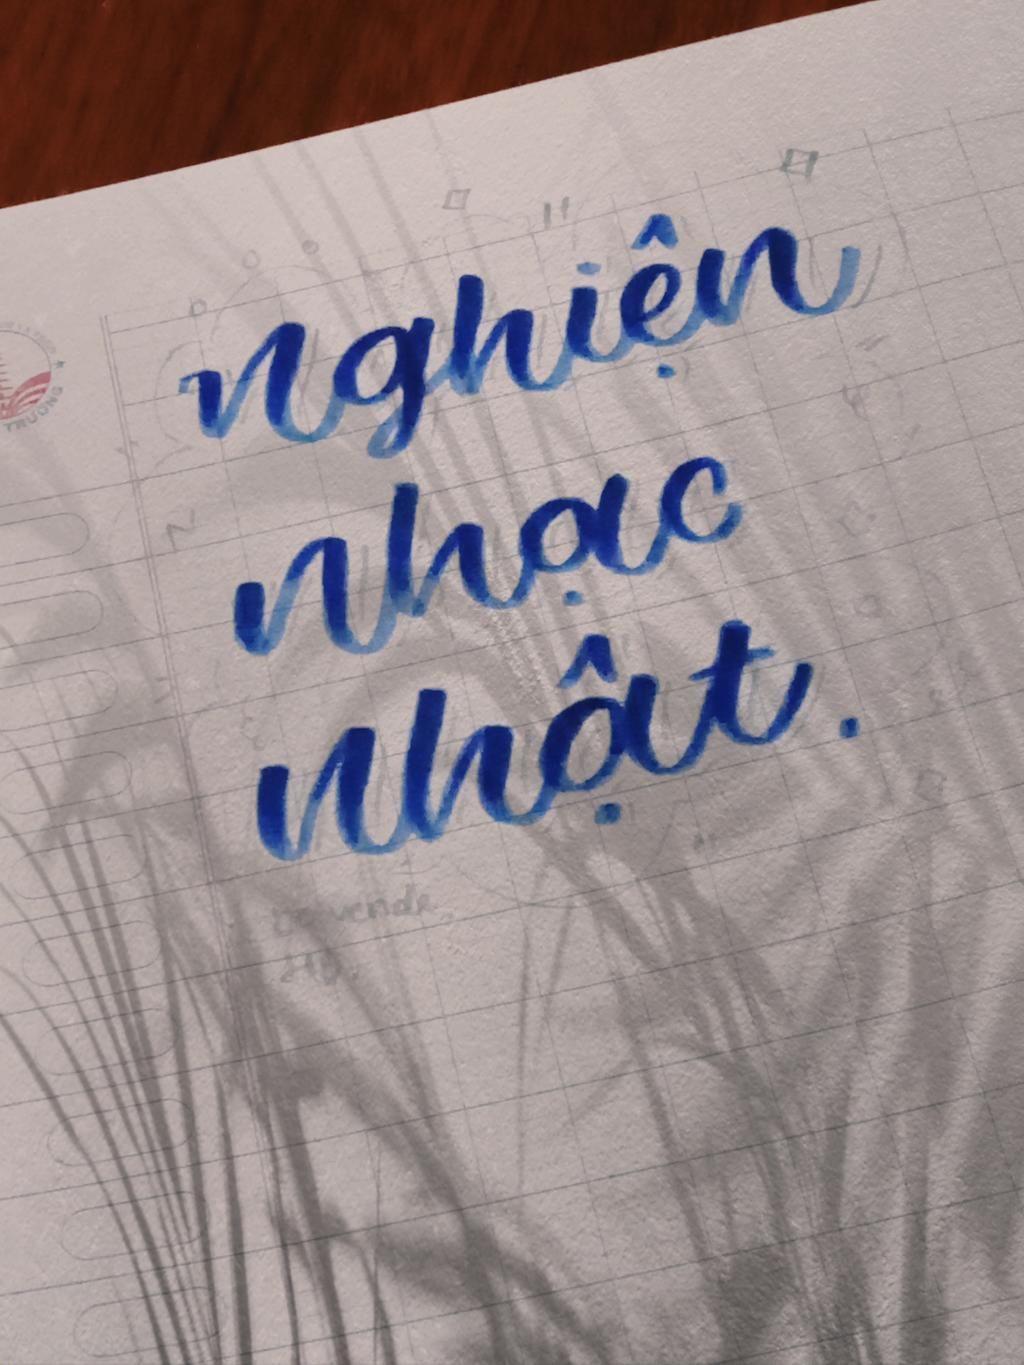 nghiện
nhạc
nhật.
TRƯỜNG